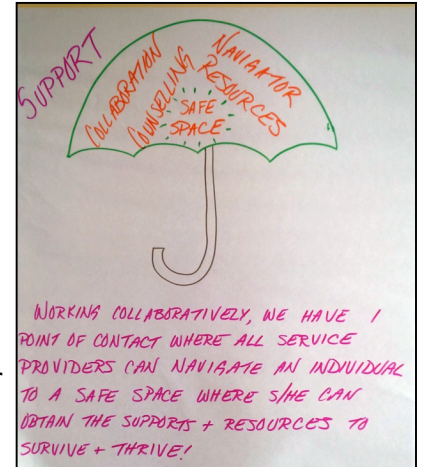 SUPPORT
COLLABORATION
COUNSELLING
NAVIGATOR
RESOURCES
SAFE
SPACE
WORKING COLLABORATIVELY, WE HAVE 1
POINT OF CONTACT WHERE ALL SERVICE
PROVIDERS CAN NAVIGATE AN INDIVIDUAL
TO A SAFE SPACE WHERE S/HE CAN
OBTAIN THE SUPPORTS + RESOURCES TO
SURVIVE + THRIVE!